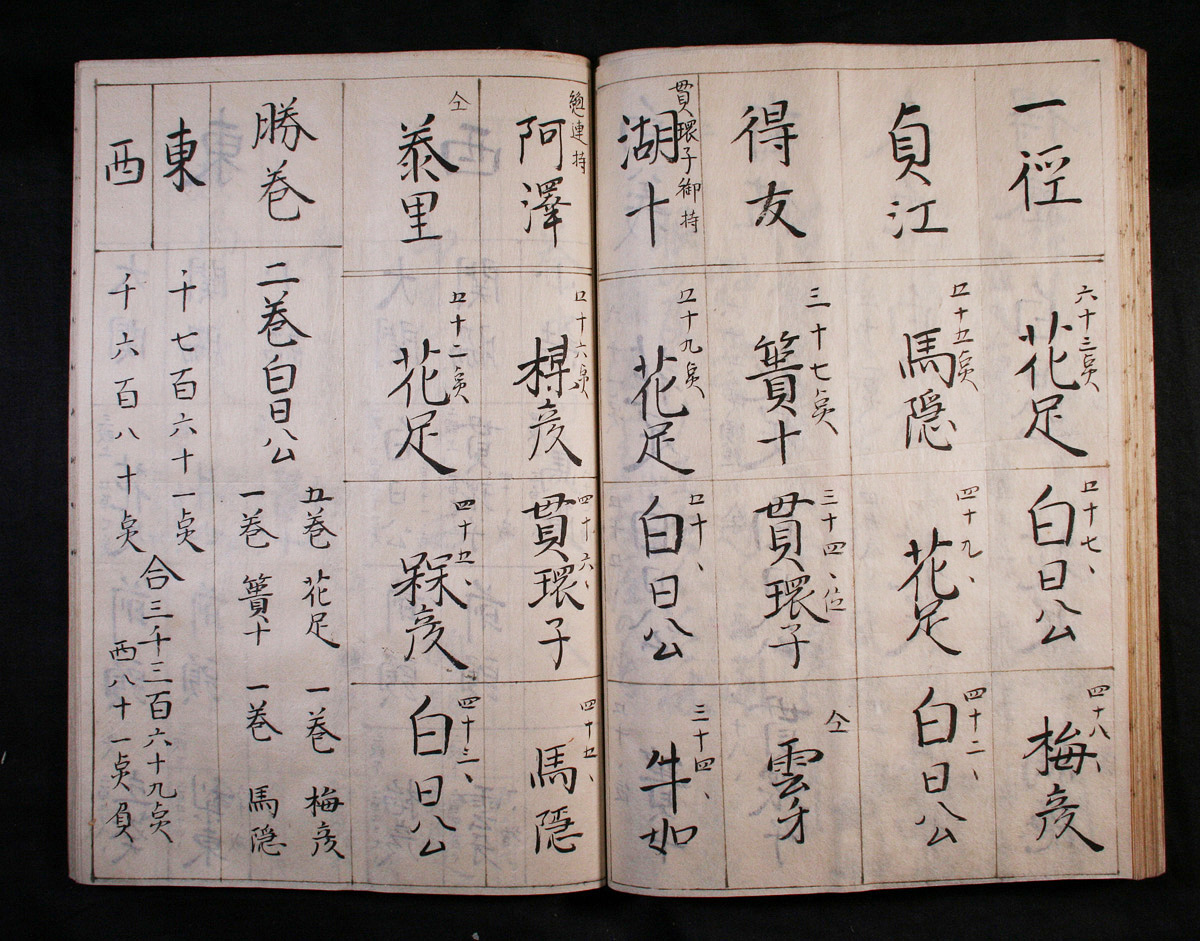 一徑
六十三点 花足
四十七、 白日公
四十八、 梅彦
貞江
四十五点 馬隠
四十九、 花足
四十二、 白日公
得友
三十七点 簣十
三十四、位 貫環子
仝 雲牙
貫環子御持
湖十
四十九点 花足
四十、 白日公
三十四、 牛如
連持
阿澤
四十六点 彦
四十六、 貫環子
四十五、 馬隠
仝
泰里
四十二点 花足
四十五、 彦
四十三、 白日公
勝巻
二巻 白日公
五巻 花足 一巻 梅彦
一巻 簣十 一巻 馬隠
東
千七百六十一点
西
千六百八十点
合三千三百六十九点
西八十一点負